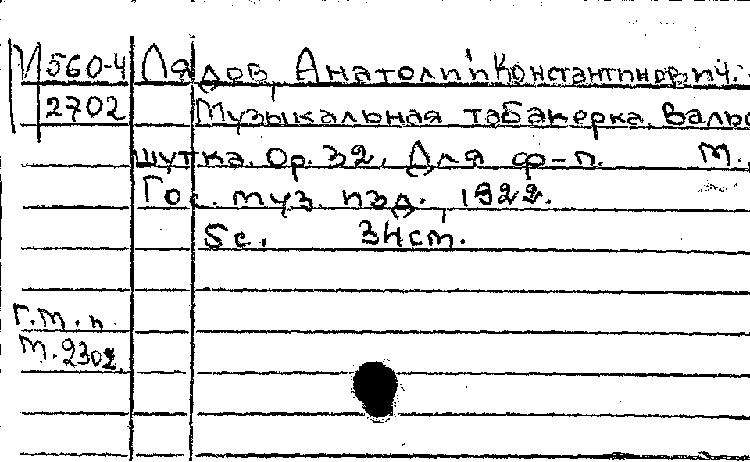 М 560-4 Лядов, Анатолий Константинович.
2702 Музыкальная табакерка. Вальс
шутка. Op. 32. Для ф-п. М.,
Гос. муз. изд., 1922.
5с. 34см.
Г.М.п.
М.2302.